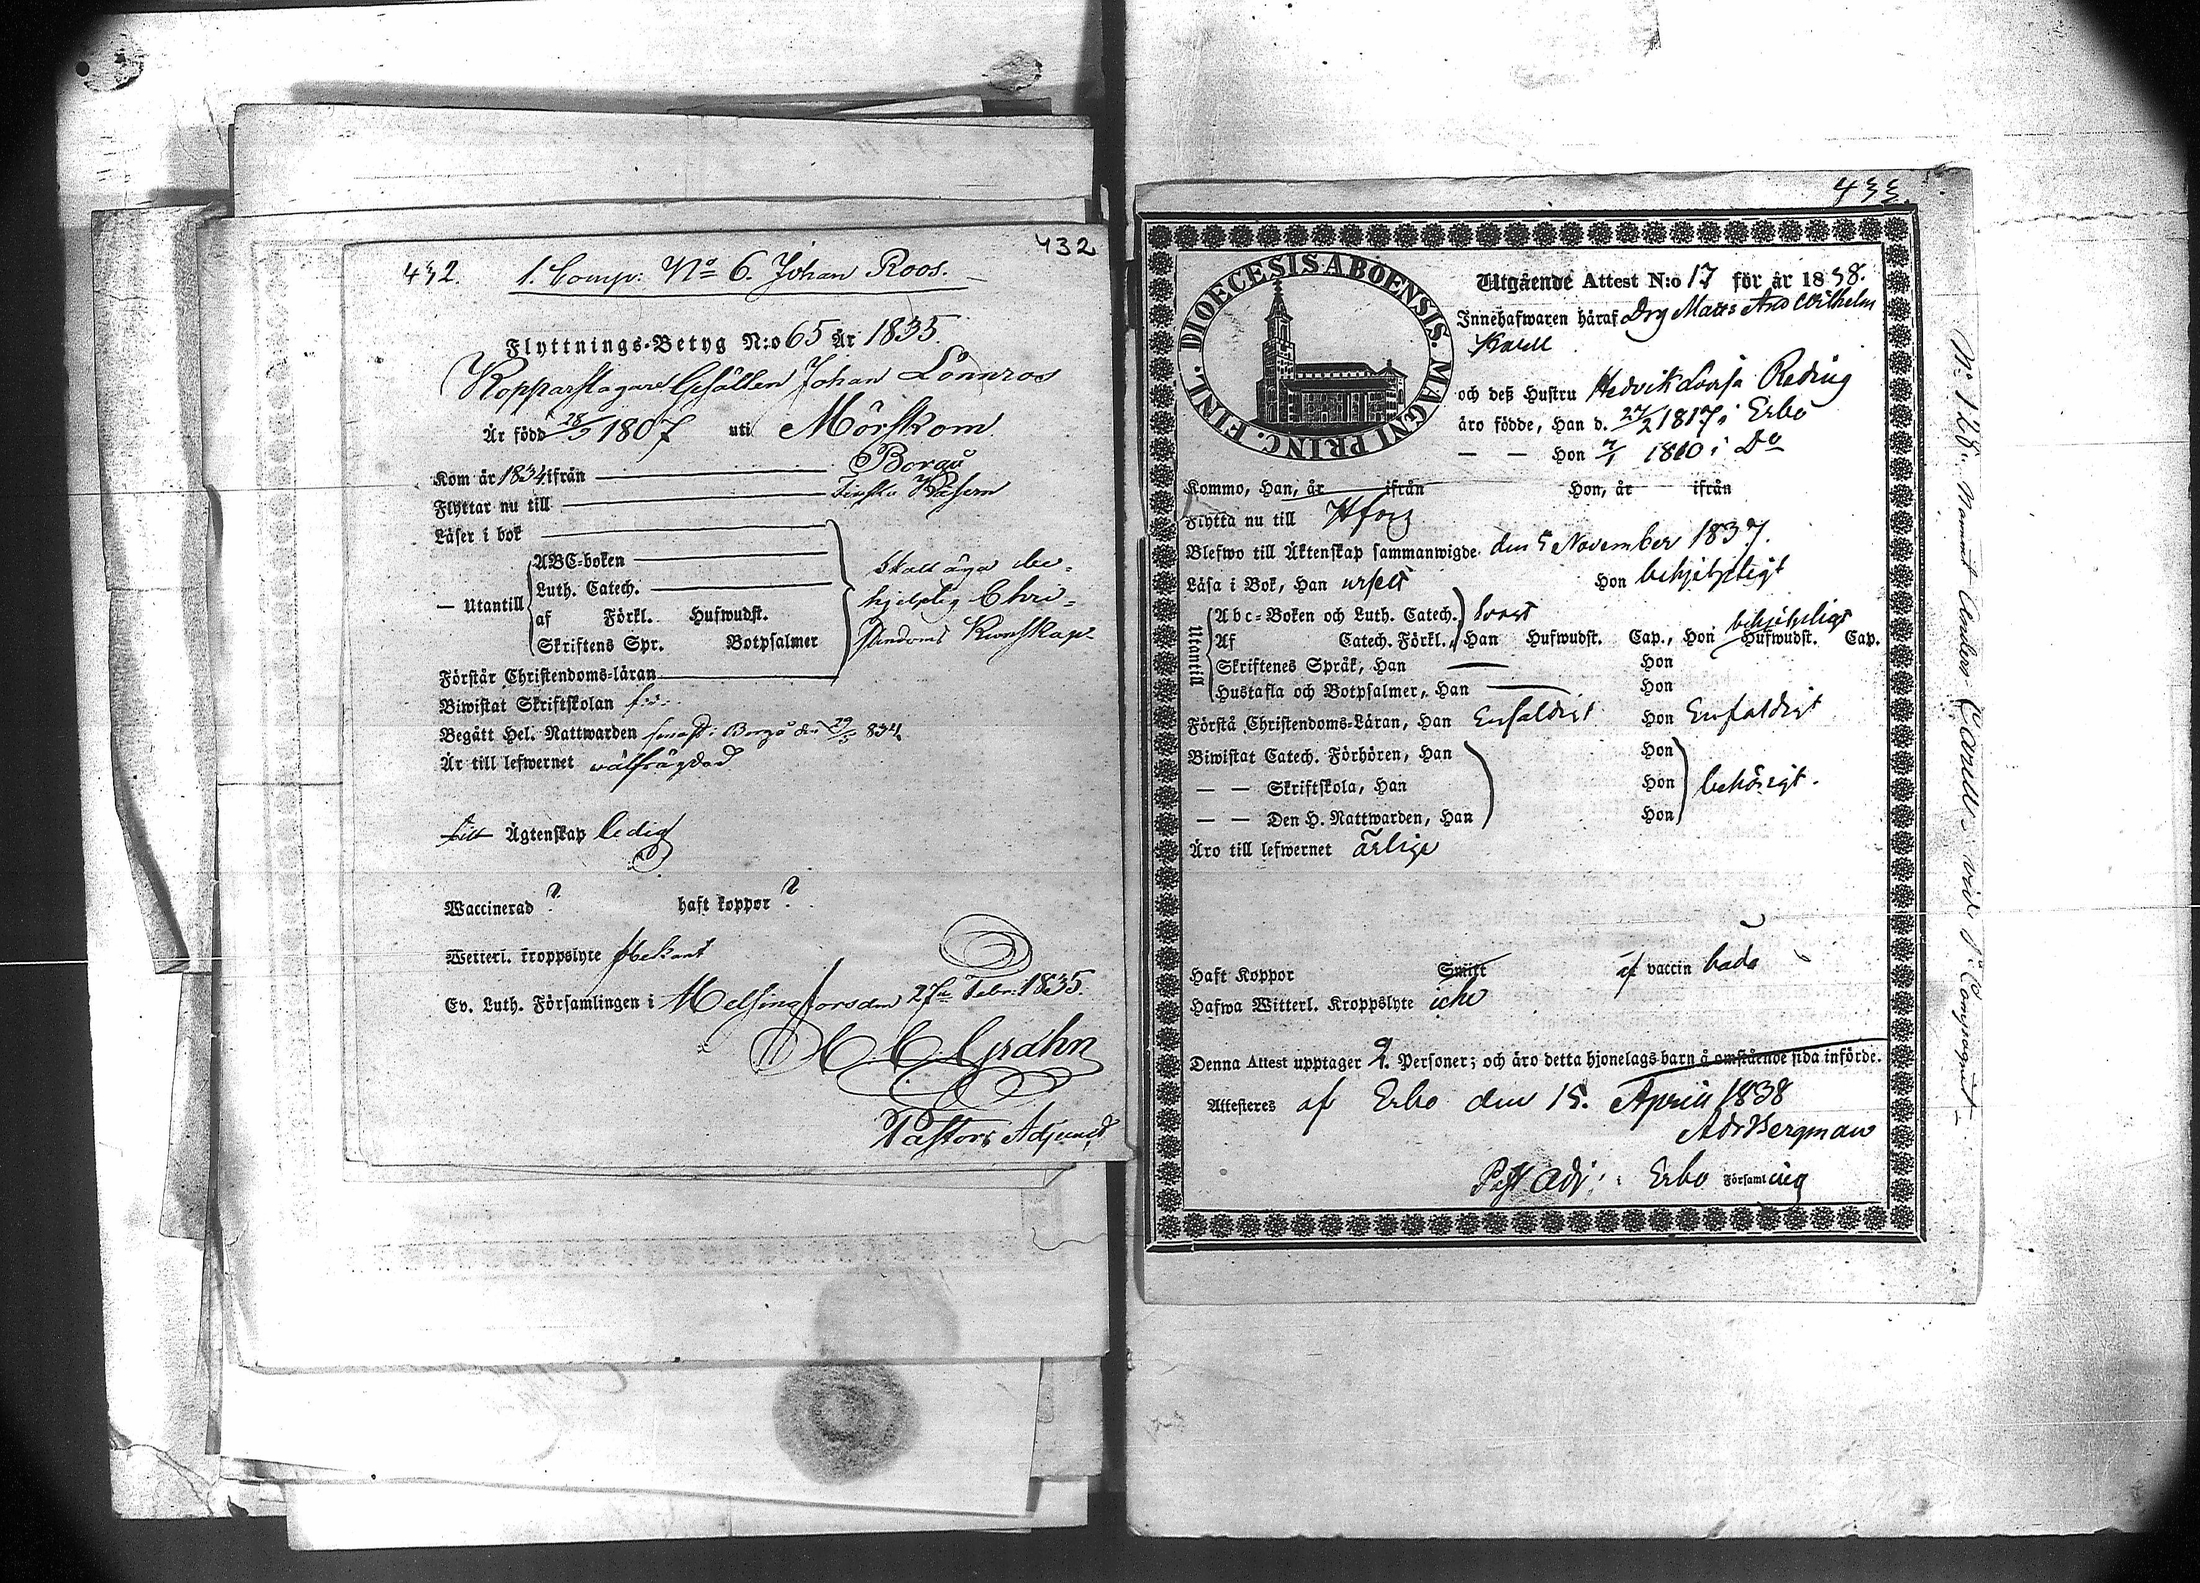 432
432. 1. Comp: No 6. Johan Roos.
Flyttnings-Betyg N:o 65 År 1835.
Kopparslagare Gesällen Johan Lönnros
Är född 28/5 1807 uti Mörskom
Kom år 1834 ifrån Borgå
Flyttar nu till Finska
Läser i bok
ABC-boken
Luth. Catech.
— Utantill
af Förkl. Hufwudst.
Skriftens Spr. Botpsalmer
skall äga be-
hjelplig Chri-
stendoms Kunskap
Förstår Christendoms-läran
Biwistat Skriftskolan
Begått Hel. Nattwarden senast i Borgå den 29/5 834
Är till lefwernet välfrägdad
till Ägtenskap ledig
Waccinerad ? haft koppor ?
Wetterl. kroppslyte obekant
Ev. Luth. Församlingen i Helsingfors den 27de Febr. 1835.
Grahn
Pastors Adjunct
433.
DIOECESIS ABOENSIS. MAGNI PRINC. FINL.
Utgående Attest N:o 17 för år 1838.
Innehafwaren häraf Drg Matts And Wilhelm
och deß Hustru Hedvik Lovisa Reding
äro födde, Han d. 27/2 1817 i Erbo
— — Hon 7/1 1810 i Do
Kommo, Han, år ifrån Hon, år ifrån
Flytta nu till Hfors
Blefwo till Äktenskap sammanwigde den 5 November 1837.
Läsa i Bok, Han urselt Hon behjelpligt
Utantill
Abc-Boken och Luth. Catech. svart behjelpligt
Af Catech. Förkl., Han Hufwudst. Cap., Hon Hufwudst. Cap.
Skriftenes Språk, Han Hon
Hustafla och Botpsalmer, Han Hon
Förstå Christendoms-Läran, Han Enfaldigt Hon Enfaldigt
Biwistat Catech. Förhören, Han Hon
— — Skriftskola, Han Hon behörigt.
— — Den H. Nattwarden, Han Hon
Äro till lefwernet ärlige
Haft Koppor Smitt af vaccin båda
Hafwa Witterl. Kroppslyte icke
Denna Attest upptager 2. Personer; och äro detta hjonelags barn å omstående sida införde.
Attesteres af Erbo den 15. April 1838
Bergman
Past adj: Erbo Församling
No 128. Mannen Anders vid 1a Compagniet